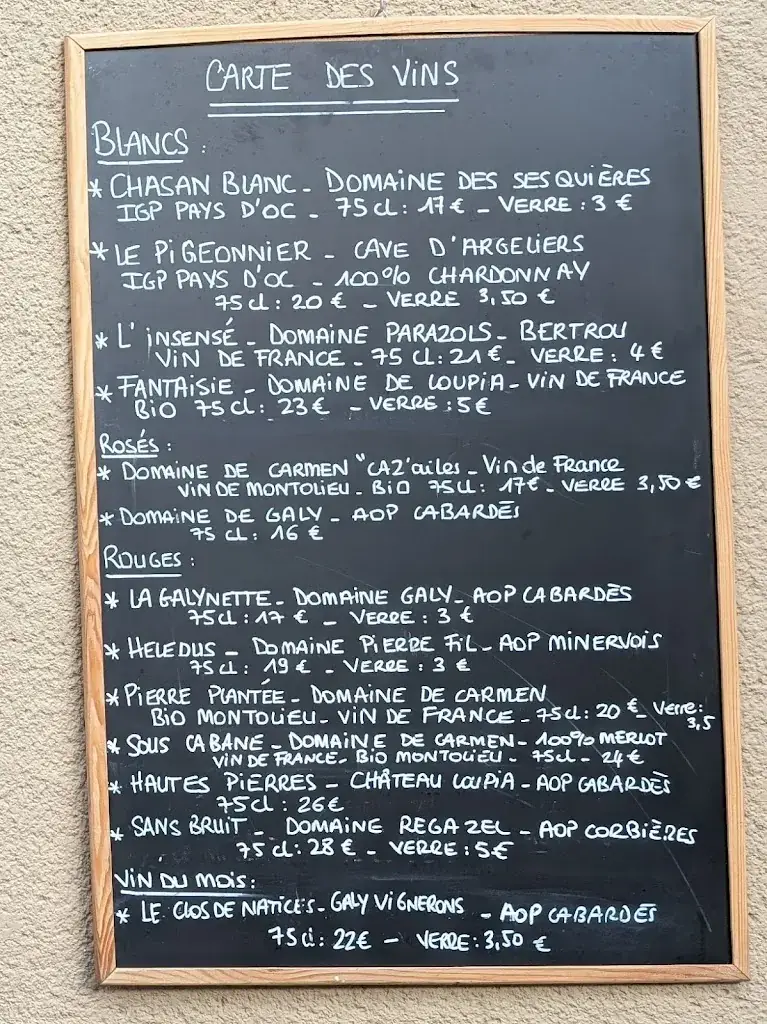 CARTE DES VINS
BLANCS :
* CHASAN BLANC - DOMAINE DES SESQUIÈRES
IGP PAYS D'OC - 75cl : 17 € - VERRE : 3 €
* LE PIGEONNIER - CAVE D'ARGELIERS
IGP PAYS D'OC - 100% CHARDONNAY
75cl : 20 € - VERRE 3,50 €
* L'INSENSÉ - DOMAINE PARAZOLS - BERTROU
VIN DE FRANCE - 75 cl : 21 € - VERRE : 4 €
* FANTAISIE - DOMAINE DE LOUPIA - VIN DE FRANCE
BIO 75cl : 23 € - VERRE : 5 €
ROSÉS :
* DOMAINE DE CARMEN "CAZ'ailes - Vin de France
VIN DE MONTOLIEU - BIO 75cl : 17€ - VERRE 3,50 €
* DOMAINE DE GALY - AOP CABARDÈS
75 cl : 16 €
ROUGES :
* LA GALYNETTE - DOMAINE GALY - AOP CABARDÈS
75cl : 17 € - VERRE : 3 €
* HELEDUS - DOMAINE PIERRE FIL - AOP MINERVOIS
75 cl : 19 € - VERRE : 3 €
* PIERRE PLANTÉE - DOMAINE DE CARMEN
BIO MONTOLIEU - VIN DE FRANCE - 75cl : 20 € - Verre :
3,5
* SOUS CABANE - DOMAINE DE CARMEN - 100% MERLOT
VIN DE FRANCE - BIO MONTOLIEU - 75cl - 24 €
* HAUTES PIERRES - CHÂTEAU LOUPIA - AOP CABARDÈS
75cl : 26€
* SANS BRUIT - DOMAINE REGAZEL - AOP CORBIÈRES
75 cl : 28 € - VERRE : 5€
VIN DU MOIS :
* LE CLOS DE NATICES - GALY VIGNERONS - AOP CABARDÈS
75cl : 22€ - VERRE : 3,50 €